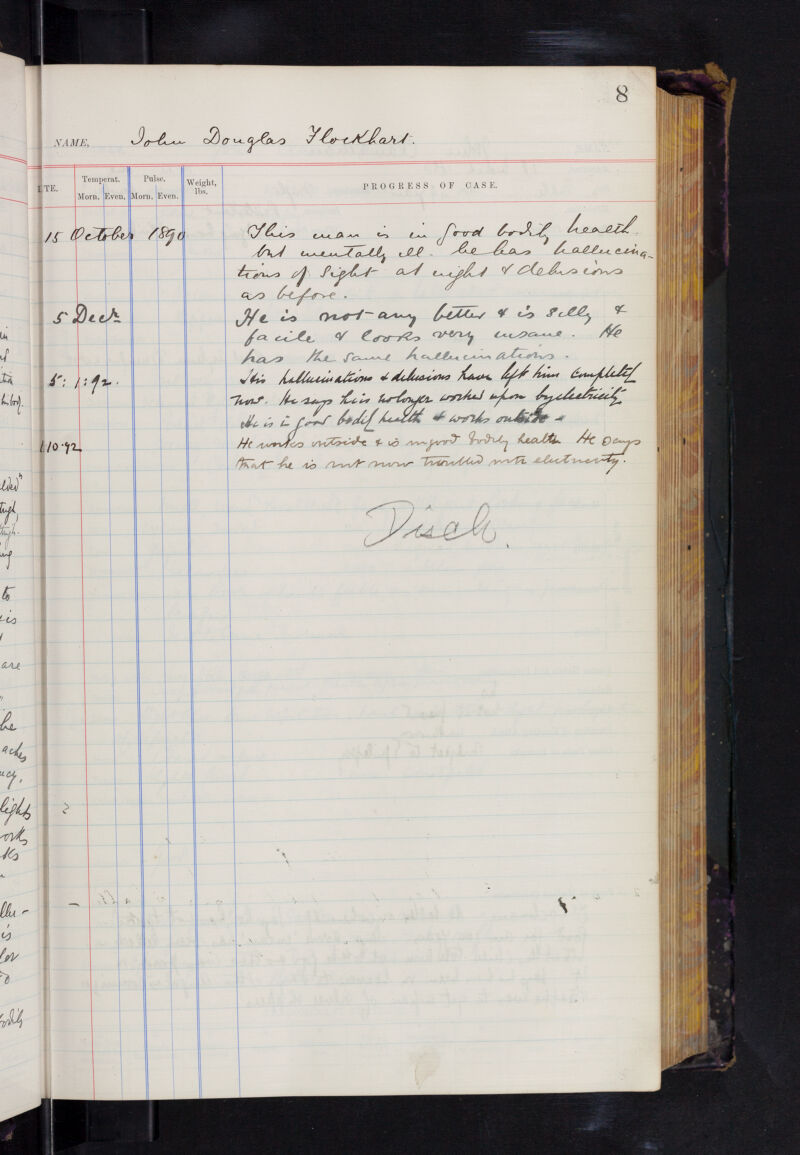 8
NAME, John Douglas Flockhart.
DATE. Temperat. Pulse. Weight, lbs. PROGRESS OF CASE.
Morn. Even. Morn. Even.
15 October 1890 This man is in good bodily health
but mentally ill. he has hallucina-
tions of Sight at night & delusions
as before.
5 Decr. He is not any better & is silly &
facile & looks very insane. He
has the same hallucinations.
5: 1: 92. His hallucinations & delusions have left him completely
now. He says he is no longer worked upon by electricity
He is in good bodily health & works outside
1.10.92 He works outside & is in good bodily health He says
that he is not now troubled with electricity.
Disch.